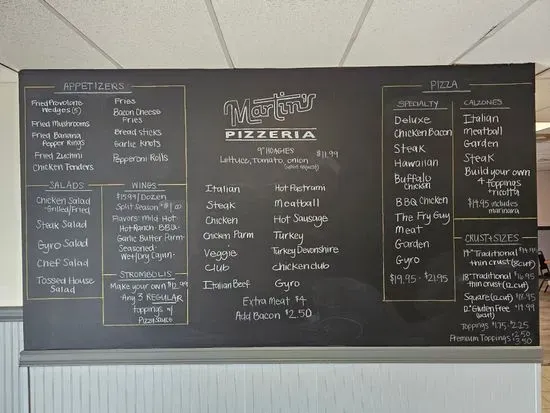 APPETIZERS
Fried Provolone
Wedges (5)
Fried Mushrooms
Fried Banana
Pepper Rings
Fried Zuchini
Chicken Tenders
Fries
Bacon Cheese
Fries
Bread sticks
Garlic Knots
Pepperoni Rolls
SALADS
Chicken Salad
Grilled/Fried
Steak Salad
Gyro Salad
Chef Salad
Tossed House
Salad
WINGS
$15.99/Dozen
Split Season $1.00
Flavors: Mild-Hot-
Hot Ranch-BBQ-
Garlic Butter Parm-
Seasoned-
Wet/Dry Cajun-
STROMBOLIS
Make your own $12.99
Any 3 REGULAR
toppings w/
Pizza Sauce
Martin's
PIZZERIA
9" HOAGIES
Lettuce, Tomato, onion $11.99
Italian
Steak
Chicken
Chicken Parm
Veggie
Club
Italian Beef
Hot Pastrami
Meatball
Hot Sausage
Turkey
Turkey Devonshire
Chicken club
Gyro
Extra Meat $4
Add Bacon $2.50
PIZZA
SPECIALTY
Deluxe
Chicken Bacon
Steak
Hawaiian
Buffalo
Chicken
BBQ Chicken
The Fry Guy
Meat
Garden
Gyro
$19.95 - $21.95
CALZONES
Italian
meatball
Garden
Steak
Build your own
4 toppings
+ ricotta
$19.95 includes
marinara
CRUST+SIZES
Traditional
thin crust (8cut)
18" Traditional $16.95
thin crust (12cut)
Square (12cut) $18.95
12" Gluten Free $14.99
Toppings $1.75-$2.25
Premium Toppings $2.50
$3.50